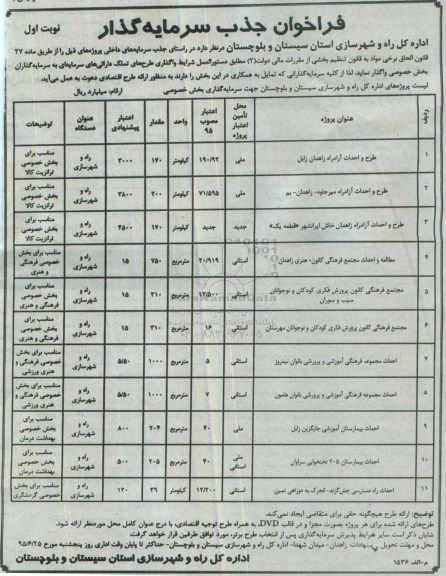 فراخوان جذب سرمایه‌گذار
نوبت اول
اداره کل راه و شهرسازی استان سیستان و بلوچستان درنظر دارد در راستای جذب سرمایه‌های داخلی پروژه‌های ذیل را از طریق ماده ۲۷
قانون الحاق برخی مواد به قانون تنظیم بخشی از مقررات مالی دولت(۲) مطابق دستورالعمل شرایط واگذاری طرح‌های تملک دارائی‌های سرمایه‌ای به سرمایه‌گذاران
بخش خصوصی واگذار نماید، لذا از کلیه سرمایه‌گذارانی که تمایل به همکاری در این بخش را دارند به منظور ارائه طرح اقتصادی دعوت به عمل می‌آید.
لیست پروژه‌های اداره کل راه و شهرسازی سیستان و بلوچستان جهت سرمایه‌گذاری بخش خصوصی ارقام: میلیارد ریال
ردیف عنوان پروژه محل تأمین اعتبار پروژه اعتبار مصوب ۹۵ واحد مقدار اعتبار پیشنهادی عنوان دستگاه توضیحات
۱ طرح و احداث آزادراه زاهدان زابل ملی ۱۹۰/۹۲ کیلومتر ۱۷۰ ۳۰۰۰ راه و شهرسازی مناسب برای بخش خصوصی ترانزیت کالا
۲ طرح و احداث آزادراه میرجاوه- زاهدان- بم ملی ۷۱/۵۹۵ کیلومتر ۲۰۰ ۳۸۰۰ راه و شهرسازی مناسب برای بخش خصوصی ترانزیت کالا
۳ طرح و احداث آزادراه زاهدان خاش ایرانشهر «قطعه یک» جدید جدید کیلومتر ۱۷۰ ۴۵۰۰ راه و شهرسازی مناسب برای بخش خصوصی ترانزیت کالا
۴ مطالعه و احداث مجتمع فرهنگی کانون- هنری زاهدان استانی ۲۰/۹۱۹ مترمربع ۷۵۰ ۱۵ راه و شهرسازی مناسب برای بخش خصوصی فرهنگی و هنری
۵ مجتمع فرهنگی کانون پرورش فکری کودکان و نوجوانان سیب و سوران استانی ۱۲/۵۰۰ مترمربع ۳۱۰ ۱۵ راه و شهرسازی مناسب برای بخش خصوصی فرهنگی و هنری
۶ مجتمع فرهنگی کانون پرورش فکری کودکان و نوجوانان مهرستان استانی ۱۶ مترمربع ۳۱۰ ۱۵ راه و شهرسازی مناسب برای بخش خصوصی فرهنگی و هنری
۷ احداث مجموعه فرهنگی آموزشی و پرورشی بانوان نیمروز استانی ۵ مترمربع ۱۰۰۰ ۵/۵۰ راه و شهرسازی مناسب برای بخش خصوصی فرهنگی و هنری ورزشی
۸ احداث مجموعه فرهنگی آموزشی و پرورشی بانوان هامون استانی ۷ مترمربع ۱۰۰۰ ۵/۵۰ راه و شهرسازی مناسب برای بخش خصوصی فرهنگی و هنری ورزشی
۹ احداث بیمارستان آموزشی جایگزین زابل ملی ۴۰ مترمربع ۲۰۴ ۸۰۰ راه و شهرسازی مناسب برای بخش خصوصی بهداشت درمان
۱۰ احداث بیمارستان ۲۰۵ تختخوابی سراوان ملی استانی ۴۰ مترمربع ۲۰۵ ۵۰۰ راه و شهرسازی مناسب برای بخش خصوصی بهداشت درمان
۱۱ احداث راه دسترسی استانی ۱۲/۲۰۰ کیلومتر ۳۹ ۱۲۰ راه و شهرسازی مناسب برای بخش خصوصی گردشگری
توضیح: ارائه طرح هیچگونه حقی برای متقاضی ایجاد نمی‌کند.
طرح‌های ارائه شده برای هر پروژه بصورت مجزا و در قالب DVD، به همراه طرح توجیه اقتصادی، با درج عنوان کامل محل موردنظر ارائه شود.
شایان ذکر است سایر شرایط پذیرش سرمایه‌گذاری پس از انتخاب طرح برتر، مورد توافق طرفین قرار خواهد گرفت.
محل و مهلت تحویل پیشنهادات: زاهدان- میدان شهدا- اداره کل راه و شهرسازی سیستان و بلوچستان- حداکثر تا پایان وقت اداری روز پنجشنبه مورخ ۹۵/۶/۲۵
اداره کل راه و شهرسازی استان سیستان و بلوچستان
م-الف ۱۵۳۶